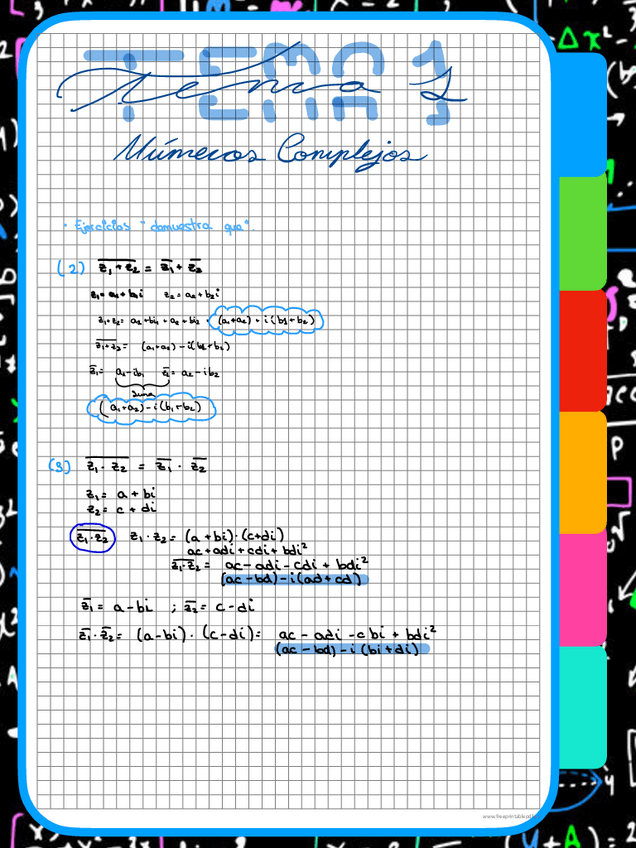 TEMA 1
Tema 1
Números Complejos
· Ejercicios "demuestra que".
(2) \overline{z₁+z₂} = \overline{z₁} + \overline{z₂}
z₁ = a₁ + b₁i z₂ = a₂ + b₂i
z₁+z₂ = a₁ + bi₁ + a₂ + bi₂ = (a₁+a₂) + i(b₁+b₂)
\overline{z₁+z₂} = (a₁+a₂) - i(b₁+b₂)
\overline{z₁} = a₁-ib₁ \overline{z₂} = a₂-ib₂
suma
(a₁+a₂)-i(b₁+b₂)
(3) \overline{z₁·z₂} = \overline{z₁} · \overline{z₂}
z₁ = a + bi
z₂ = c + di
\overline{z₁·z₂} z₁·z₂ = (a+bi)·(c+di)
ac+adi+cdi+bdi²
\overline{z₁·z₂} = ac-adi-cdi+bdi²
(ac-bd)-i(ad+cd)
\overline{z₁} = a-bi ; \overline{z₂} = c-di
\overline{z₁}·\overline{z₂} = (a-bi)·(c-di) = ac-adi-cbi+bdi²
(ac-bd)-i(bi+di)
Δx²